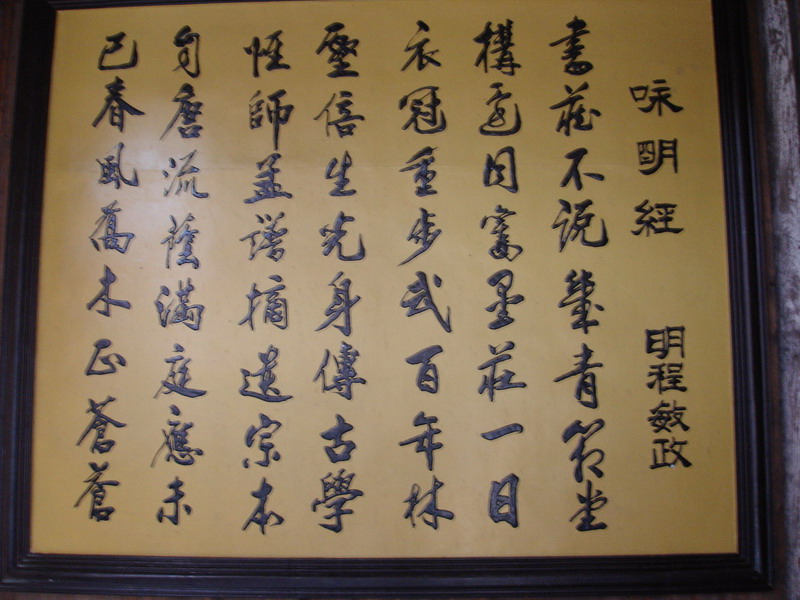 咏明經
明程敏政
書藏不说青箱堂
構還因富墨莊一日
衣冠重步武百年林
壑倍生光身傳古學
惟師盖譜摘遺宗本
自唐流蔭滿庭應未
已春風喬木正蒼蒼